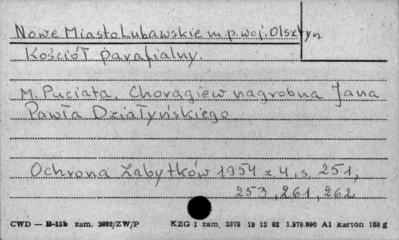 Nowe Miasto Lubawskie m.p. woj. Olsztyn
Kościół parafialny.
M. Puciata, Chorągiew nagrobna Jana
Pawła Działyńskiego
Ochrona Zabytków 1954 z 4, s. 251,
253, 261, 262
CWD — H-15b zam. 2082/ZW/P KZG 1 zam, 2375 19 12 62 1.979.000 A1 karton 180 g